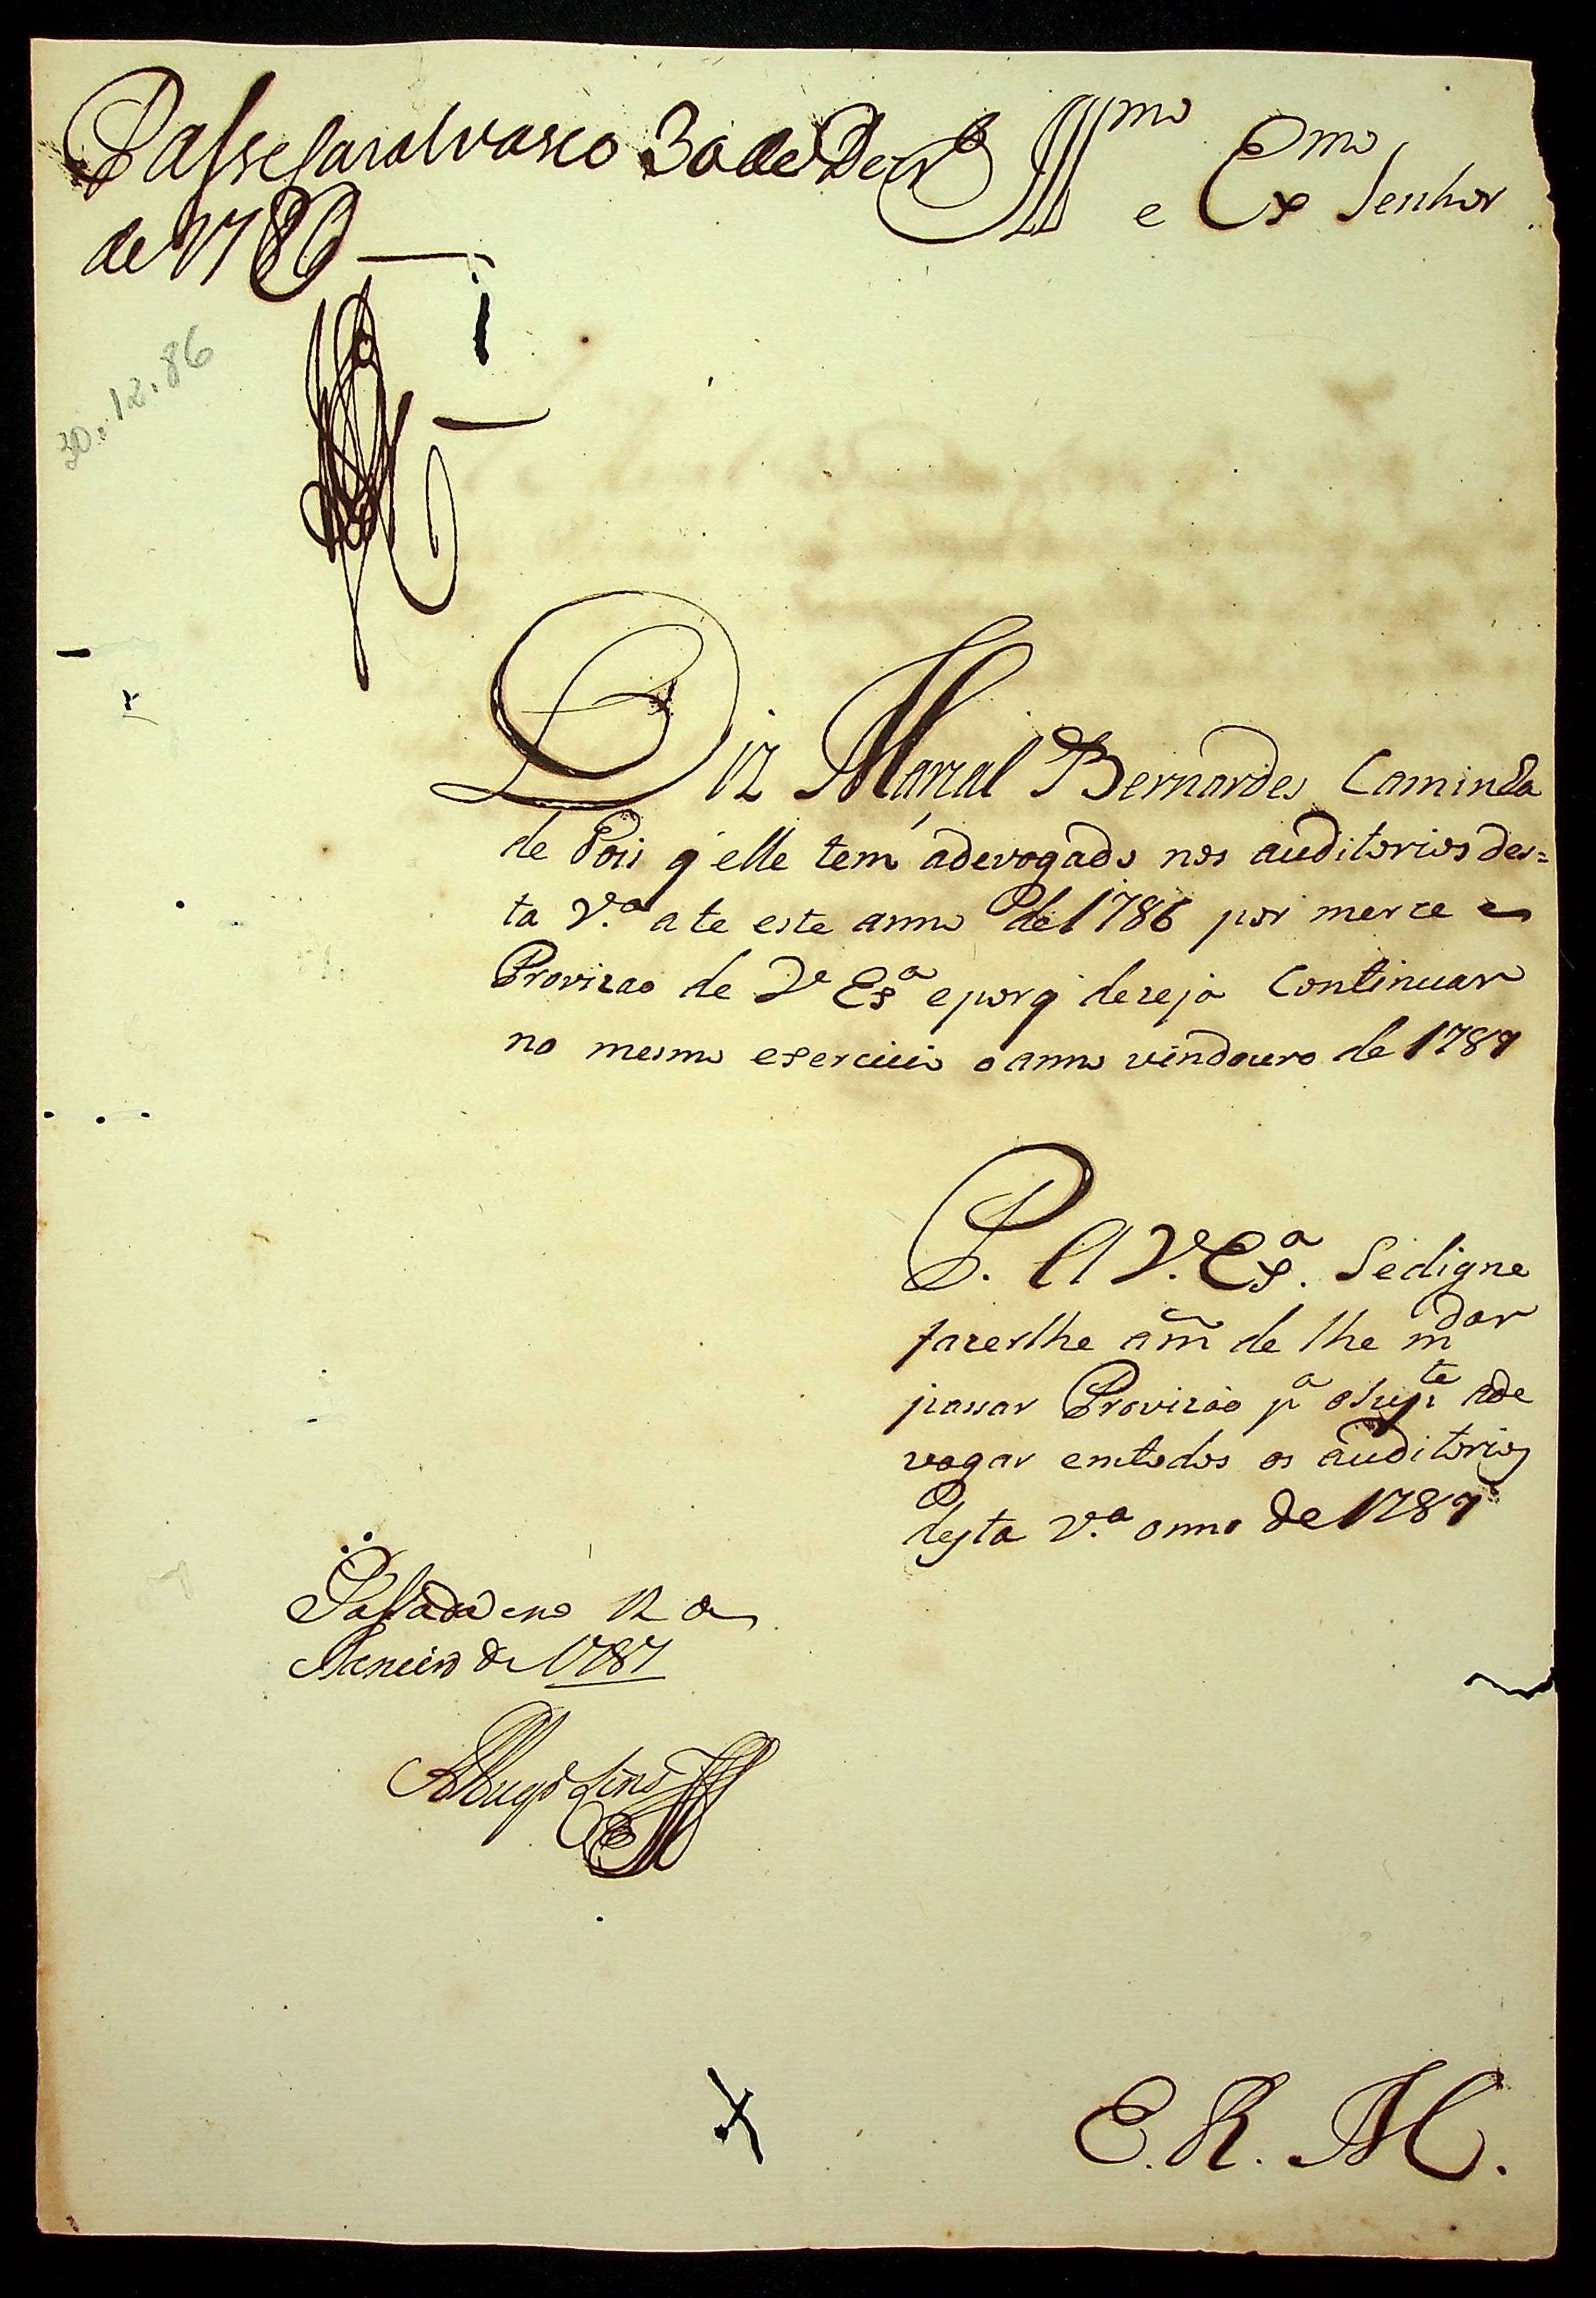 Passe Casalvasco 30 de Dezbro
de 1786
Illmo e Exmo Senhor
30.12.86
Diz Marçal Bernardes Caminha
de Pois q' elle tem adevogado nos auditorios des=
ta V.a a te este anno de 1786 por merce e
Provizao de V Exa e porq' dezeja Continuar
no mesmo exercicio o anno vindouro de 1787
P. A V. Exa. Se digne
fazerlhe a m̃ de lhe mdar
passar Provizão pa o Supte ade
vogar emtodos os auditorios
desta V.a anno de 1787
Passada em 12 de
Janeiro de 1787
E. R. M.